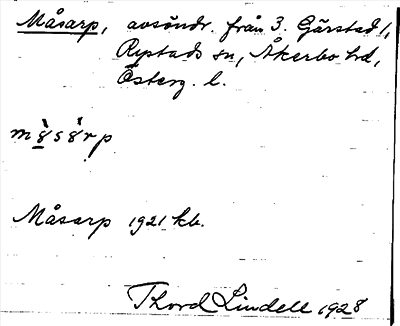 Måsarp, avsöndr. från 3. Gärstad 1,
Rystads sn, Åkerbo hd,
Österg. l.
Måsarp 1921 kb.
Thord Lindell 1928